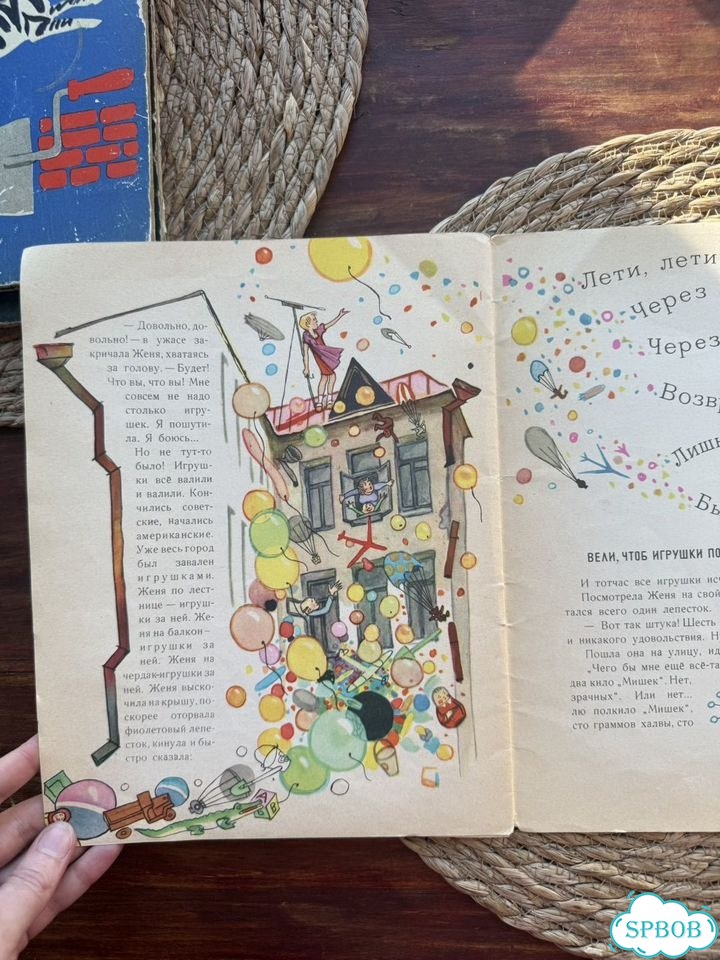 — Довольно, до-
вольно! — в ужасе за-
кричала Женя, хватаясь
за голову. — Будет!
Что вы, что вы! Мне
совсем не надо
столько игру-
шек. Я пошути-
ла. Я боюсь...
Но не тут-то
было! Игруш-
ки всё валили
и валили. Кон-
чились совет-
ские, начались
американские.
Уже весь город
был завален
игрушками.
Женя по лест-
нице — игруш-
ки за ней. Же-
ня на балкон —
игрушки за
ней. Женя на
чердак - игрушки за
ней. Женя выско-
чила на крышу, по-
скорее оторвала
фиолетовый лепе-
сток, кинула и бы-
стро сказала:
Лети, лети
Через
Через
Возв
Лишь
Бы
ВЕЛИ, ЧТОБ ИГРУШКИ ПО
И тотчас все игрушки исч
Посмотрела Женя на свой
тался всего один лепесток.
— Вот так штука! Шесть
и никакого удовольствия. Н
Пошла она на улицу, ид
„Чего бы мне ещё всё-та
два кило „Мишек". Нет,
зрачных". Или нет...
лю полкило „Мишек",
сто граммов халвы, сто
A
B
SPBOB